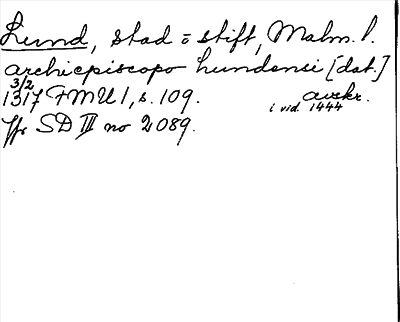 Lund, stad o stift, Malm. l.
archiepiscopo Lundensi [dat.]
3/2
1317 FMU 1, s. 109. avskr.
i vid. 1444
Jfr SD III no 2089.